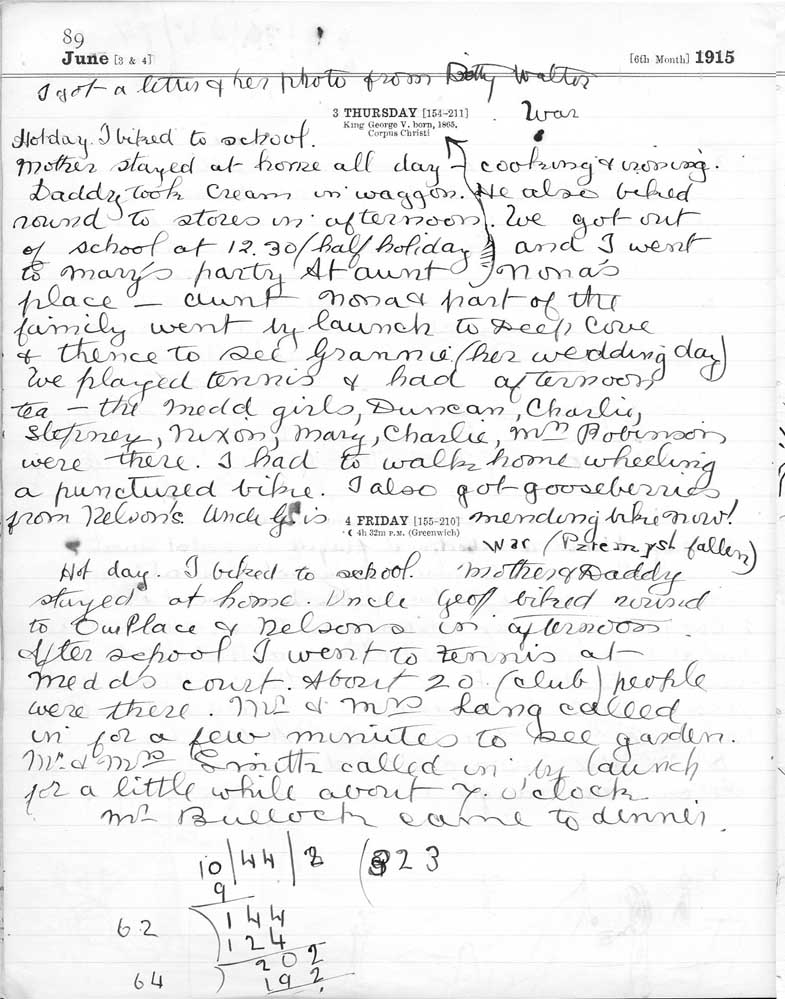 89
June [3 & 4] [6th Month] 1915
I got a letter & her photo from Betty Walter
3 THURSDAY [154-211] War
King George V. born, 1865.
Corpus Christi
Hot day. I biked to school.
Mother stayed at home all day – cooking & ironing.
Daddy took cream in waggon. He also biked
round to stores in afternoon. We got out
of school at 12.30 (half holiday) and I went
to Mary's party At aunt Nona's
place – aunt Nona & part of the
family went by launch to Deep Cove
& thence to see Grannie (her wedding day)
We played tennis & had afternoon
tea – the Medd girls, Duncan, Charlie,
Stepney, Nixon, Mary, Charlie, Mrs Robinson
were there. I had to walk home wheeling
a punctured bike. I also got gooseberries
from Nelson's. Uncle G is mending bike now!
4 FRIDAY [155-210]
☾ 4h 32m P.M. (Greenwich)
War (Przemysl fallen)
Hot day. I biked to school. Mother & Daddy
stayed at home. Uncle Geoff biked round
to OurPlace & Nelsons in afternoon.
After school I went to Tennis at
Medds court. About 20 (club) people
were there. Mr & Mrs Lang called
in for a few minutes to see garden.
Mr & Mrs Smith called in by launch
for a little while about 7. o'clock
Mr Bullock came to dinner.
10|44|8 (323
9
62 )144
124
64 )202
192